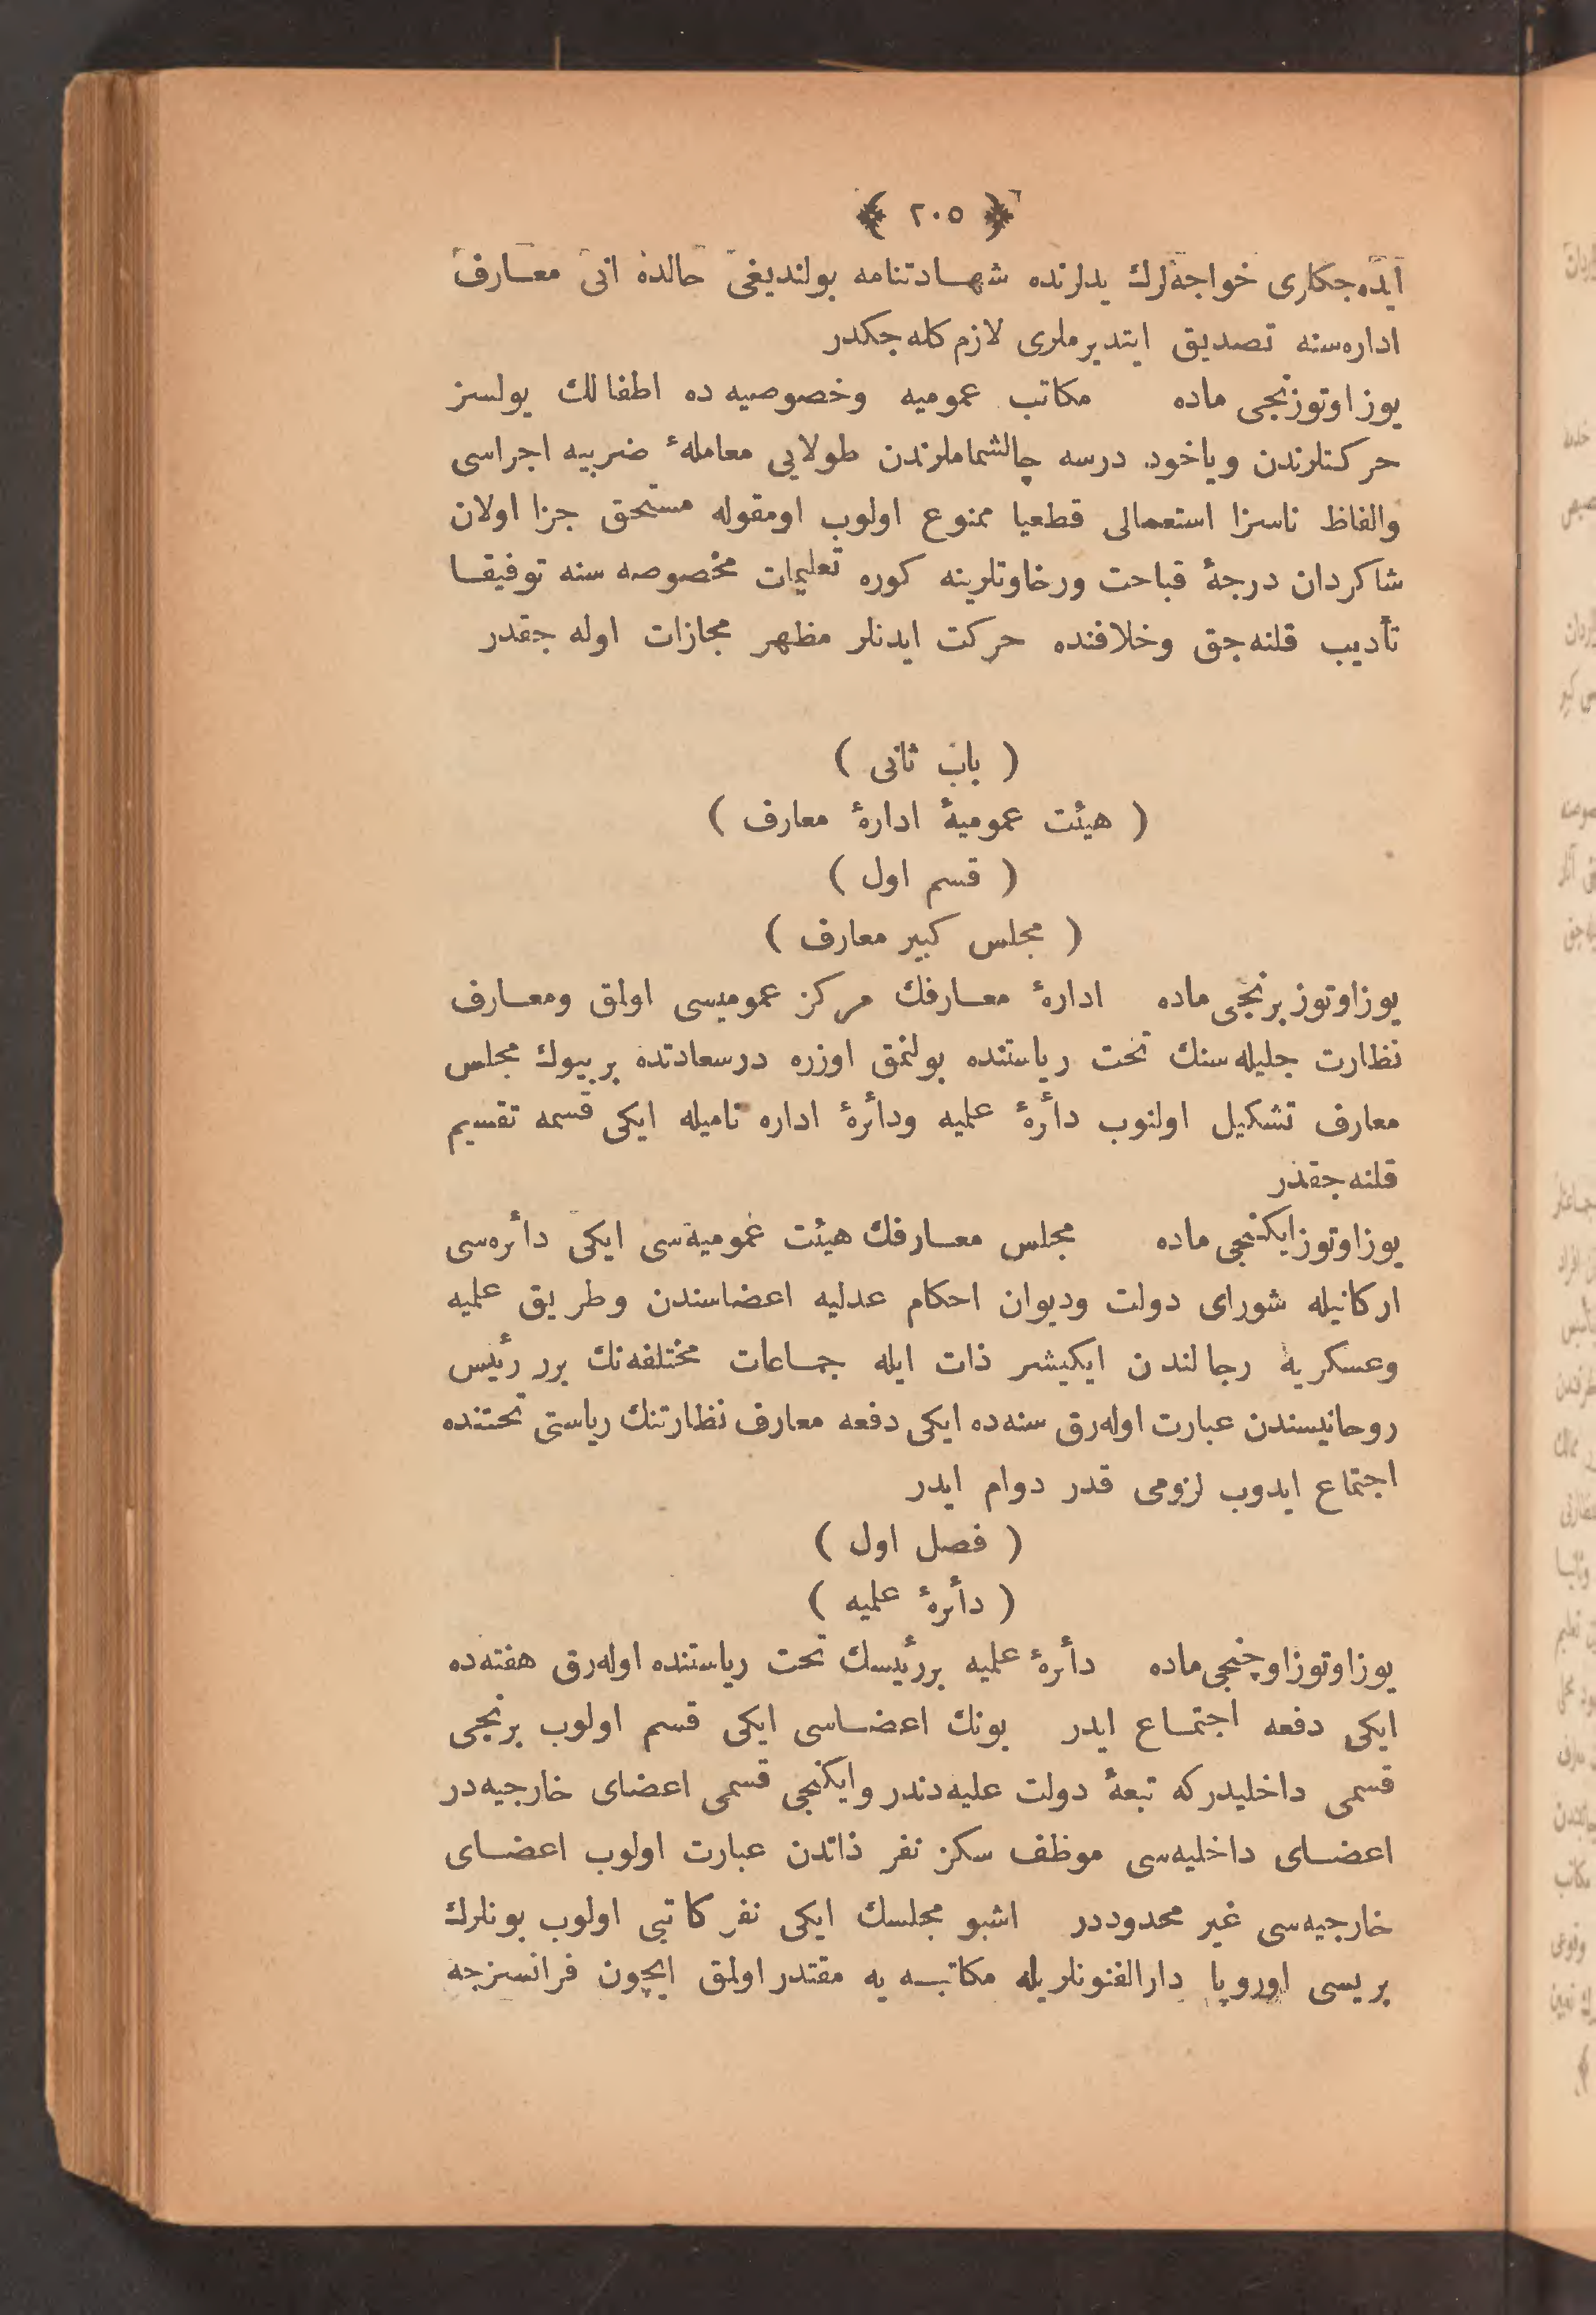 ﴿ ٢٠٥ ﴾
ایده‌جکلری خواجه‌لرك یدلرنده شهـادتنامه بولندیغی حالده انی معـارف
اداره‌سنه تصدیق ایتدیرملری لازم كله‌جكدر
یوز اوتوزنجی ماده مكاتب عمومیه وخصوصیه ده اطفالك یولسز
حركتلرندن ویاخود درسه چالشماملرندن طولایی معاملهٔ ضربیه اجراسی
والفاظ ناسزا استعمالی قطعیا ممنوع اولوب اومقوله مستحق جزا اولان
شاكردان درجهٔ قباحت ورخاوتلرینه كوره تعلیمات مخصوصه سنه توفیقـا
تأدیب قلنه‌جق وخلافنده حركت ایدنلر مظهر مجازات اوله جقدر
( باب ثانی )
( هیئت عمومیهٔ ادارهٔ معارف )
( قسم اول )
( مجلس كبیر معارف )
یوزاوتوز برنجی ماده ادارهٔ معـارفك مركز عمومیسی اولمق ومعـارف
نظارت جلیله‌سنك تحت ریاستنده بولنمق اوزره درسعادتده بر بیوك مجلس
معارف تشكیل اولنوب دأرهٔ علمیه ودأئرهٔ اداره نامیله ایكی قسمه تقسیم
قلنه‌جقدر
یوزاوتوزایكنجی ماده مجلس معـارفك هیئت عمومیه‌سی ایكی دأئره‌سی
اركانیله شورای دولت ودیوان احكام عدلیه اعضاسندن وطریق علمیه
وعسكریه رجالندن ایكیشر ذات ایله جمـاعات مختلفه‌نك برر رئیس
روحانیسندن عبارت اوله‌رق سنه‌ده ایكی دفعه معارف نظارتنك ریاستی تحتنده
اجتماع ایدوب لزومی قدر دوام ایدر
( فصل اول )
( دأئرهٔ علمیه )
یوزاوتوزاوچنجی ماده دأئرهٔ علمیه بررئیسك تحت ریاستنده اوله‌رق هفته‌ده
ایكی دفعه اجتمـاع ایدر بونك اعضـاسی ایكی قسم اولوب برنجی
قسمی داخلیدركه تبعهٔ دولت علیه‌دندر وایكنجی قسمی اعضای خارجیه‌در
اعضـای داخلیه‌سی موظف سكز نفر ذاتدن عبارت اولوب اعضـای
خارجیه‌سی غیر محدوددر اشبو مجلسك ایكی نفر كاتبی اولوب بونلرك
بریسی اوروپا دارالفنونلریله مكاتبـه یه مقتدر اولمق ایچون فرانسزجه